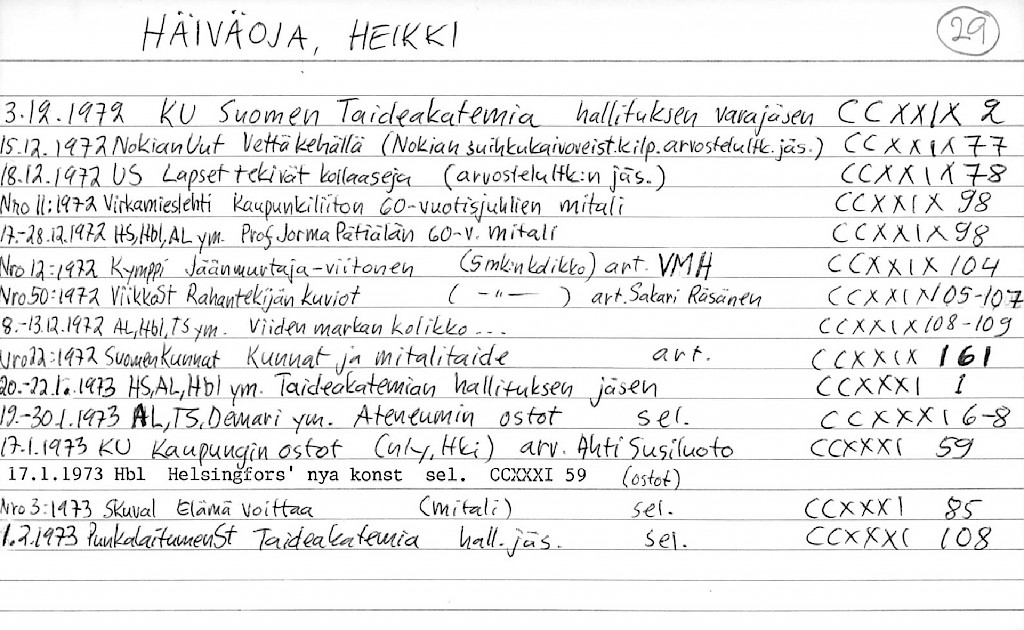 HÄIVÄOJA, HEIKKI 29
3.12.1972 KU Suomen Taideakatemia hallituksen varajäsen CCXXIX 2
15.12.1972 NokianUut Vettä kehällä (Nokian suihkukaivoveist.kilp.arvostelultk.jäs.) CCXXIX 77
18.12.1972 US Lapset tekivät kollaaseja (arvostelultk:n jäs.) CCXXIX 78
Nro 11:1972 Virkamieslehti Kaupunkiliiton 60-vuotisjuhlien mitali CCXXIX 98
17.-28.12.1972 HS,Hbl,AL ym. Prof.Jorma Pätiälän 60-v. mitali CCXXIX 98
Nro 12:1972 Kymppi Jäänmurtaja-viitonen (5mk:n kolikko) art. VMH CCXXIX 104
Nro.50:1972 ViikkoSt Rahantekijän kuviot ( -"- ) art. Sakari Räsänen CCXXIX 105-107
8.-13.12.1972 AL,Hbl,TS ym. Viiden markan kolikko... CCXXIX 108-109
Nro 22:1972 SuomenKunnat Kunnat ja mitalitaide art. CCXXIX 161
20.-22.1.1973 HS,AL,Hbl ym. Taideakatemian hallituksen jäsen CCXXXI 1
19.-30.1.1973 AL,TS,Demari ym. Ateneumin ostot sel. CCXXXI 6-8
17.1.1973 KU Kaupungin ostot (nly, Hki) arv. Ahti Susiluoto CCXXXI 59
17.1.1973 Hbl Helsingfors' nya konst sel. CCXXXI 59 (ostot)
Nro 3:1973 Skuval Elämä voittaa (mitali) sel. CCXXXI 85
1.2.1973 PunkalaitumenSt Taideakatemia hall.jäs. sel. CCXXXI 108